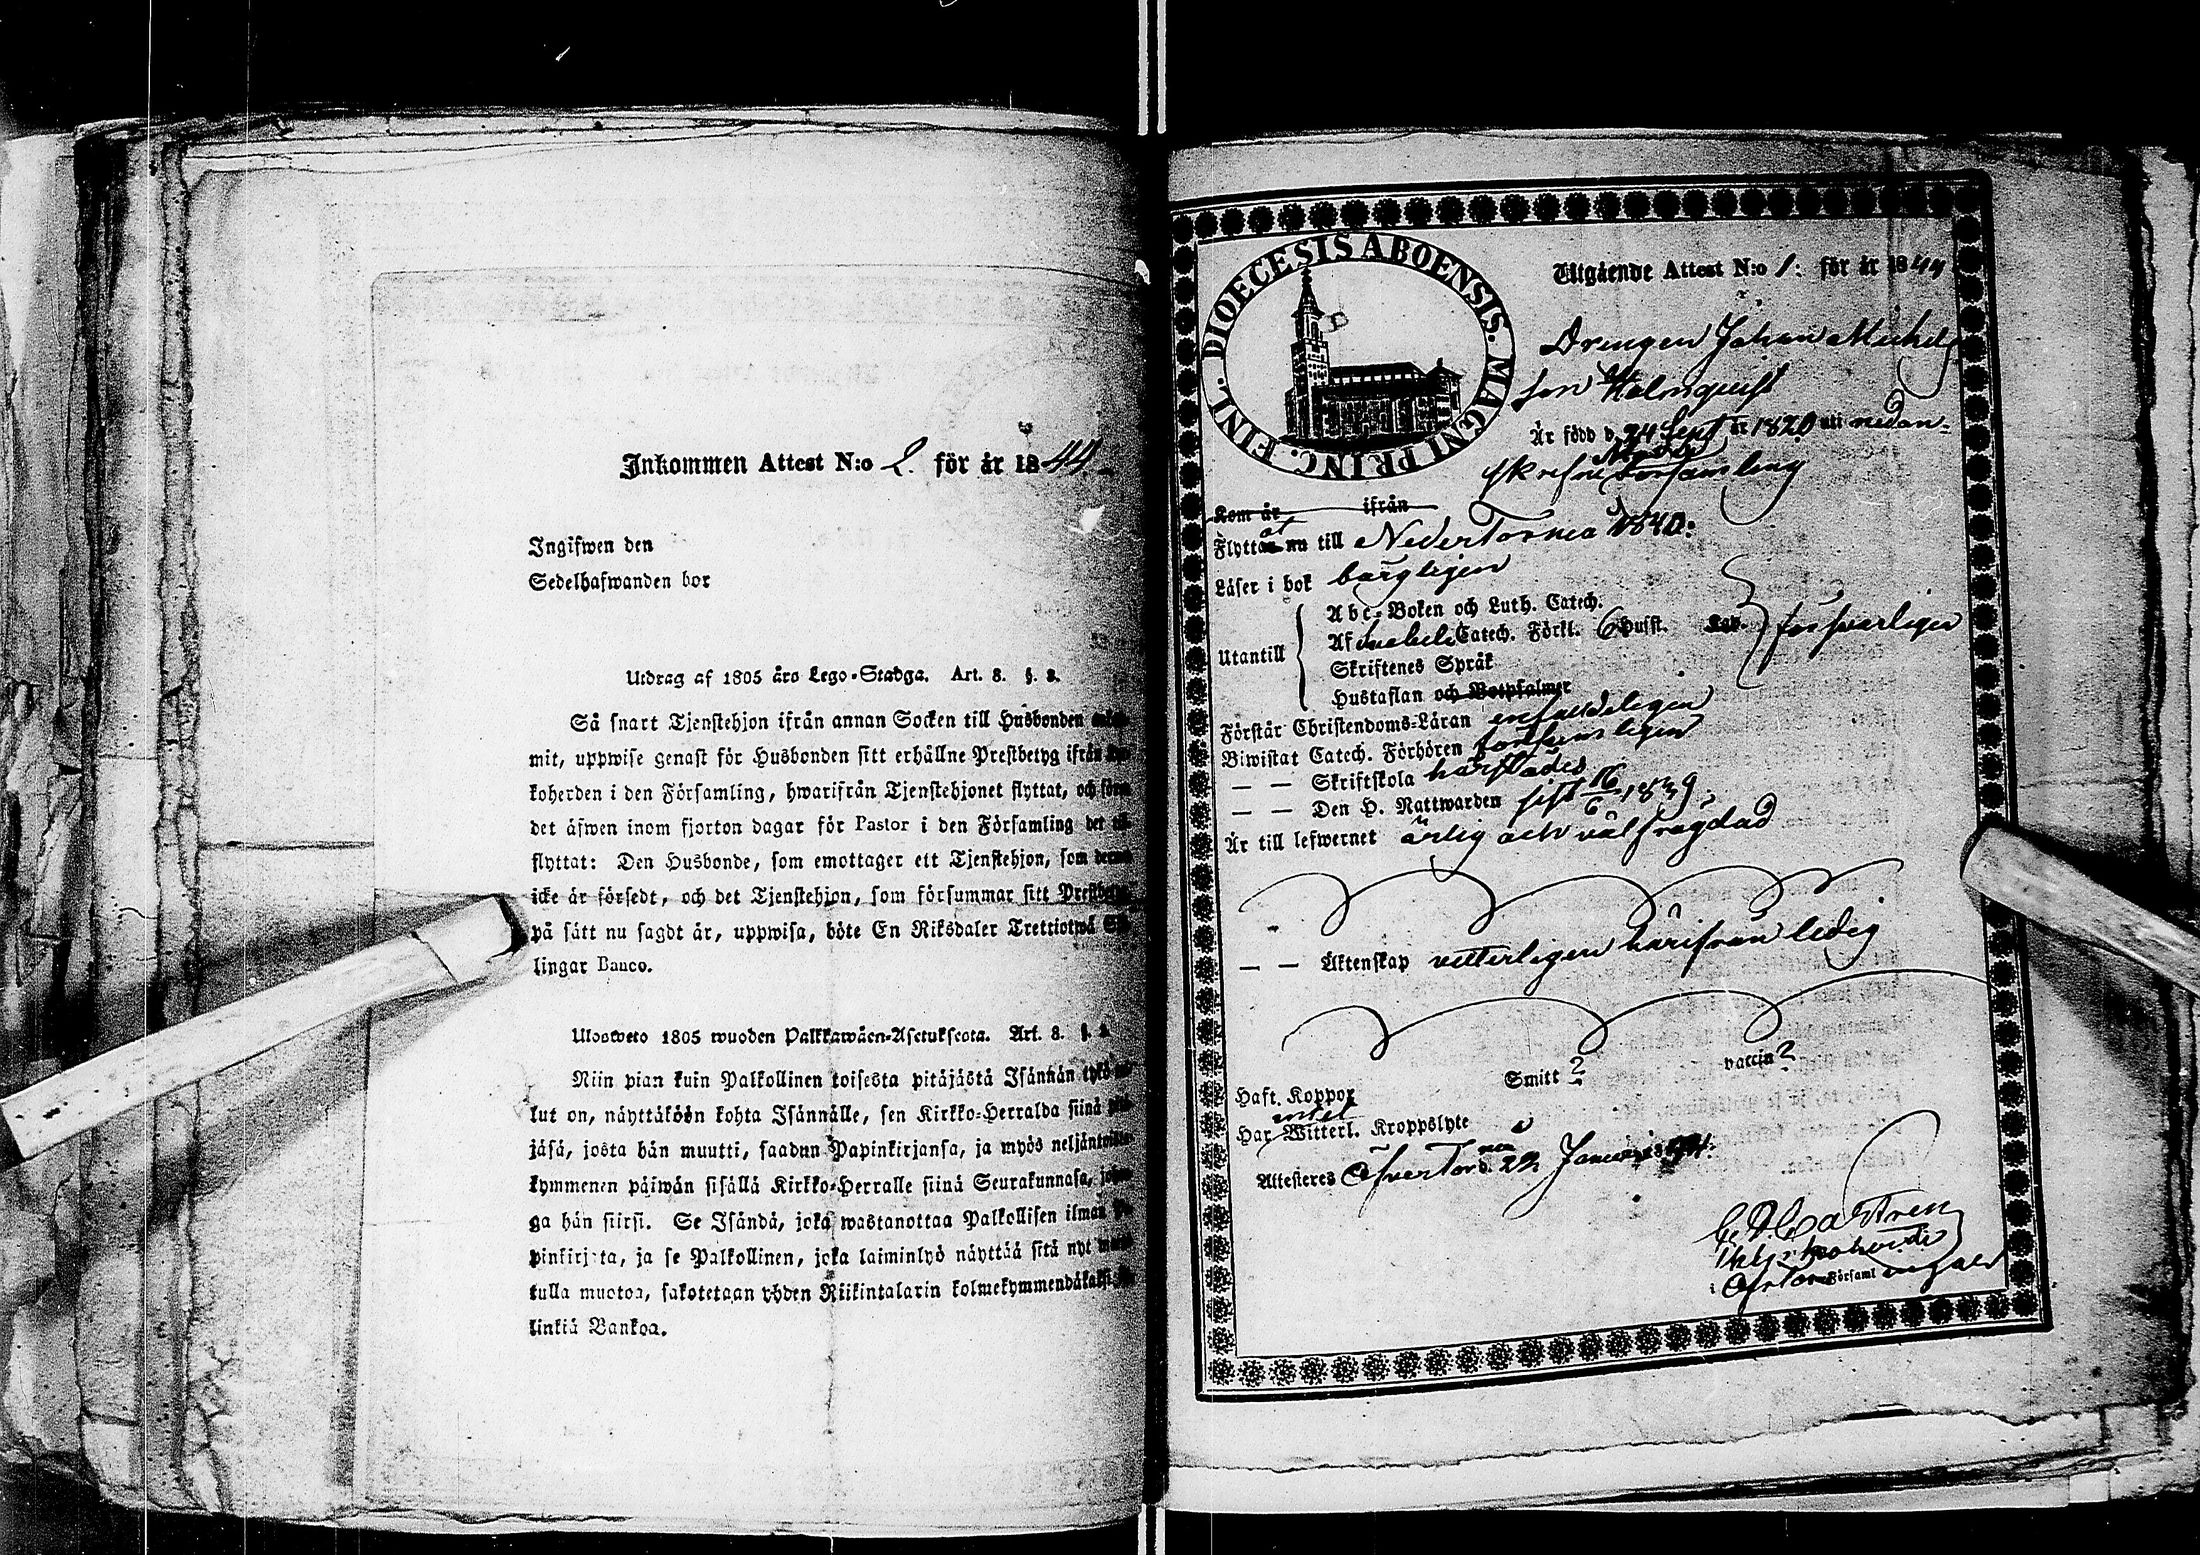 Inkommen Attest N:o 2. för år 1844
Ingifwen den
Sedelhafwanden bor
Utdrag af 1805 års Lego-Stadga. Art. 8. §. 2.
Så snart Tjenstehjon ifrån annan Socken till Husbonden
mit, uppwise genast för Husbonden sitt erhållne Prestbetyg ifrån
koherden i den Församling, hwarifrån Tjenstehjonet flyttat, och
det äfwen inom fjorton dagar för Pastor i den Församling det
flyttat: Den Husbonde, som emottager ett Tjenstehjon, som
icke är försedt, och det Tjenstehjon, som försummar sitt
på sätt nu sagdt är, uppwisa, böte En Riksdaler Trettiotwå
lingar Banco.
Ulosweto 1805 wuoden Palkkawäen-Asetuksesta. Art. 8. §.
Niin pian kuin Palkollinen toisesta pitäjästä Isännän tykö
lut on, näyttäköön kohta Isännälle, sen Kirkko-Herralda siinä
jäsä, josta hän muutti, saadun Papinkirjansa, ja myös
kymmenen päiwän sisällä Kirkko-Herralle siinä Seurakunnasa,
ga hän siirsi. Se Isändä, joka wastanottaa Palkollisen ilman
pinkirjata, ja se Palkollinen, joka laiminlyö näyttää sitä nyt
tulla muotoa, sakotetaan yhden Riikintalarin
linkiä Bankoa.
DIOECESIS ABOENSIS. MAGNI PRINC. FINL.
Utgående Attest N:o 1. för år 1844
Drengen Johan Michels
son Holmquist
Är född d. 24 Sept. år 1820 uti nedan-
skrefne Församling
Kom år ifrån
Flyttat nu till Nedertornea 1840.
Läser i bok bärgligen
Utantill
Abc-Boken och Luth. Catech.
Af Catech. Förkl. Husst. försvarligen
Skriftenes Språk
Hustaflan och Botpsalmer
Förstår Christendoms-Läran enfaldeligen
Biwistat Catech. Förhören
— — Skriftskola härstädes
— — Den H. Nattwarden sist 16/6 1839.
Är till lefwernet ärlig och välfrägdad
— — Äktenskap vetterligen härifrån ledig
Haft. Koppor Smitt ? vaccin ?
Har intet Witterl. Kroppslyte
Attesteres Öfver Torneå d. 22 Januari 1844.
Castren
Kyrkoherde
i Församl